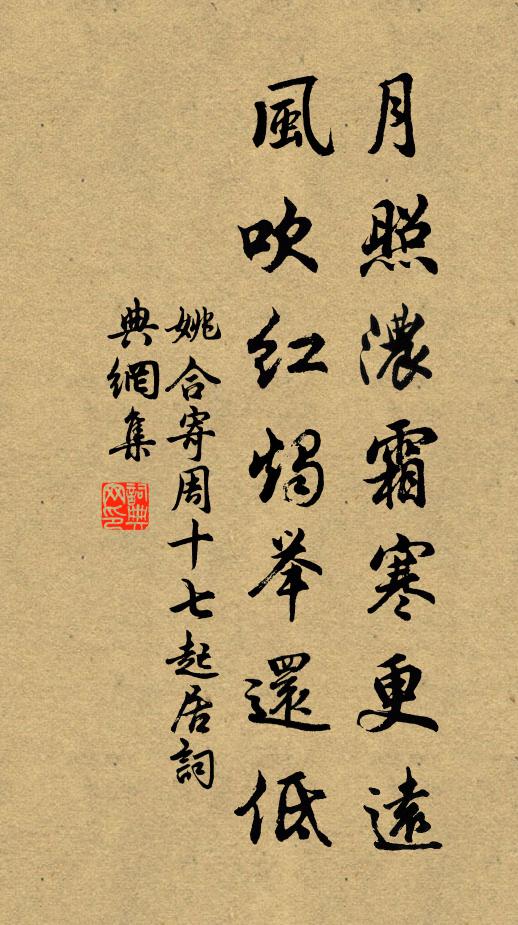 月照濃霜寒更遠
風吹紅燭举還低
姚合寄周十七起居詞
典網集
詞典
网印